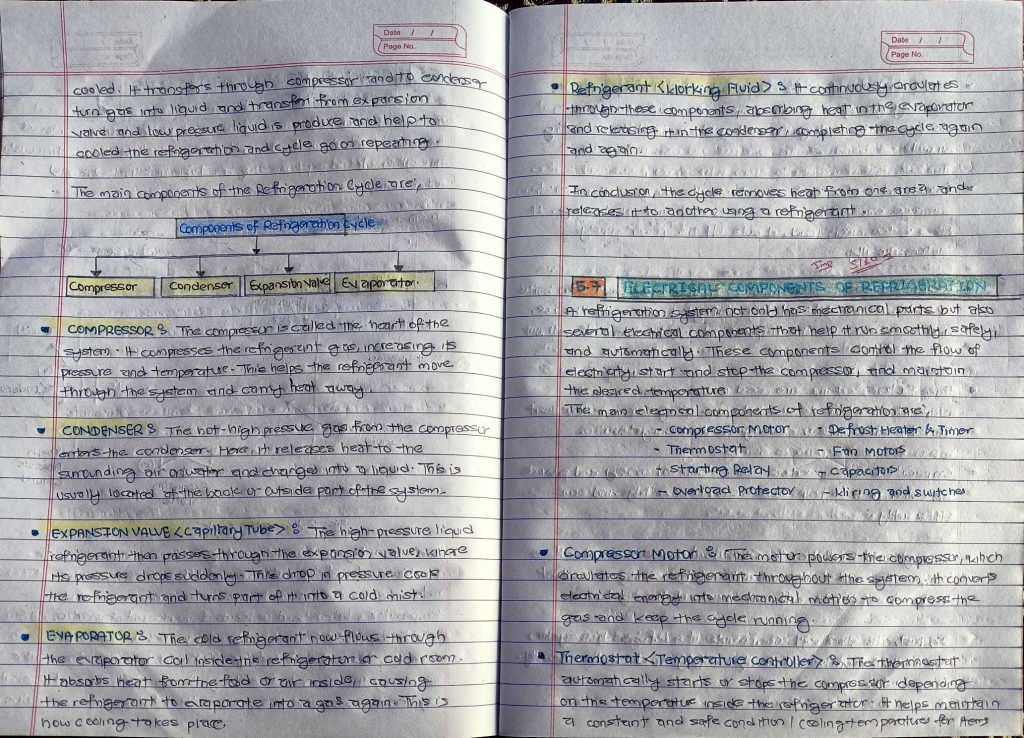 Date / /
Page No.
cooled. It transfers through compressor and to condensor
turn gas into liquid and transfer from expansion
valve and low pressure liquid is produce and help to
cooled the refrigeration and cycle go on repeating.
The main components of the Refrigeration Cycle are,
Components of Refrigeration Cycle
Compressor Condenser Expansion valve Evaporator.
• COMPRESSOR : The compressor is called the heart of the
system. It compresses the refrigerant gas, increasing its
pressure and temperature. This helps the refrigerant move
through the system and carry heat away.
• CONDENSER : The hot-high pressure gas from the compressor
enters the condenser. Here, it releases heat to the
surrounding air or water and changes into a liquid. This is
usually located at the back or outside part of the system.
• EXPANSION VALVE <Capillary Tube> : The high-pressure liquid
refrigerant then passes through the expansion valve, where
its pressure drops suddenly. This drop in pressure cools
the refrigerant and turns part of it into a cold mist.
• EVAPORATOR : The cold refrigerant now flows through
the evaporator coil inside the refrigerator or cold room.
It absorbs heat from the food or air inside, causing
the refrigerant to evaporate into a gas again. This is
how cooling takes place.
Date / /
Page No.
• Refrigerant <Working Fluid> : It continuously circulates
through these components, absorbing heat in the evaporator
and releasing it in the condenser, completing the cycle again
and again.
In conclusion, the cycle removes heat from one area and
releases it to another using a refrigerant.
Imp
5.7 ELECTRICAL COMPONENTS OF REFRIGERATION
A refrigeration system not only has mechanical parts but also
several electrical components that help it run smoothly, safely,
and automatically. These components control the flow of
electricity, start and stop the compressor, and maintain
the desired temperature
The main electrical components of refrigeration are,
- Compressor Motor - Defrost Heater & Timer
- Thermostat - Fan Motors
- Starting Relay - Capacitors
- Overload Protector - Wiring and switches
• Compressor Motor : The motor powers the compressor, which
circulates the refrigerant throughout the system. It converts
electrical energy into mechanical motion to compress the
gas and keep the cycle running.
• Thermostat <Temperature Controller> : The thermostat
automatically starts or stops the compressor depending
on the temperature inside the refrigerator. It helps maintain
a constant and safe condition / cooling temperature for items